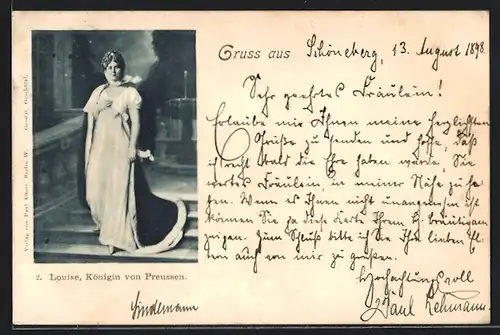 Gruss aus Schöneberg, 13. August 1898.
Sehr geehrtes Fräulein!
Erlaube mir Ihnen meine herzlichsten
Grüße zu senden und hoffe, daß
ich recht bald die Ehre haben werde, Sie
wertes Fräulein, in meiner Nähe zu ha-
ben. Wenn es Ihnen nicht unangenehm ist
können Sie ja diese Karte Ihrem H. Bräutigam
zeigen. Zum Schluß bitte ich Sie Ihre lieben El-
tern auch von mir zu grüßen.
Hochachtungsvoll
Paul Lehmann.
Verlag von Paul Berlin W. Gesetzl. Geschützt.
2. Louise, Königin von Preussen.
Lindemann